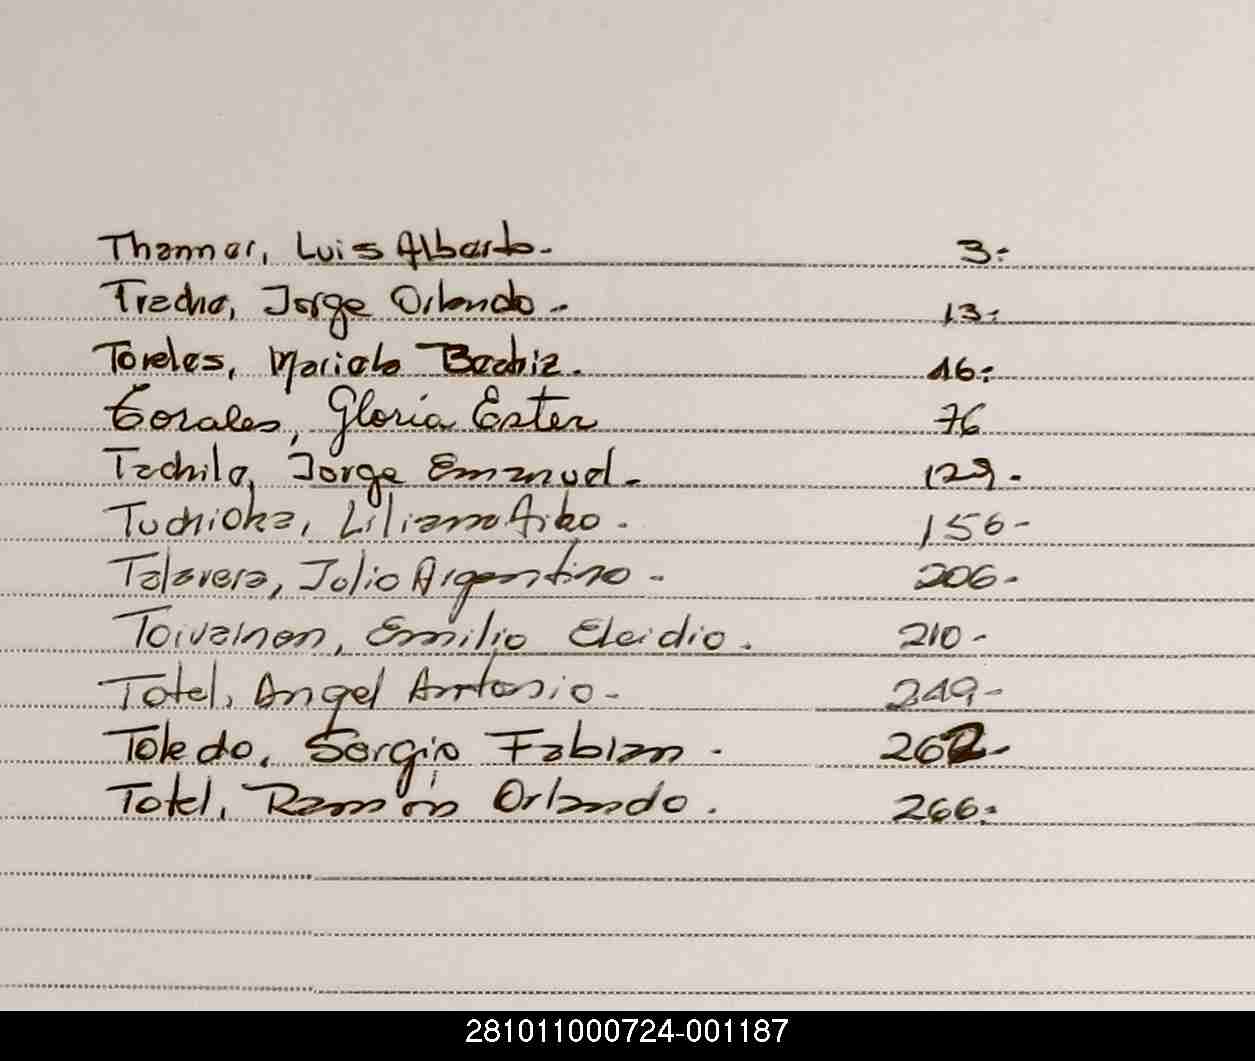 Thamar, Luis Alberto. 3.
Tracha, Jorge Orlando. 13.
Toreles, Mariela Beatriz. 46.
Corales, Gloria Ester 76
Tachila, Jorge Emanuel. 129.
Tuchioka, Liliana Aiko. 156.
Talavera, Julio Argentino. 206.
Toivainen, Emilio Eleidio. 210.
Totel, Angel Antonio. 249.
Toledo, Sergio Fabian. 262.
Totel, Ramón Orlando. 266.
281011000724-001187